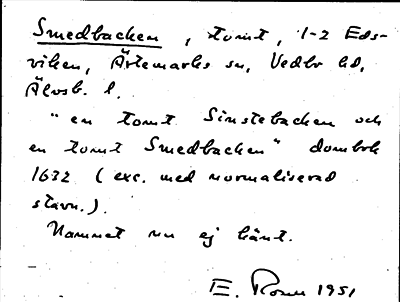 Smedbacken, tomt, 1-2 Eds-
viken, Ärtemarks sn, Vedbo hd,
Älvsb. l.
"en tomt Sinstebacken och
en tomt Smedbacken" dombok
1632 (exc. med normaliserad
stavn.).
Namnet nu ej känt.
E. 1951